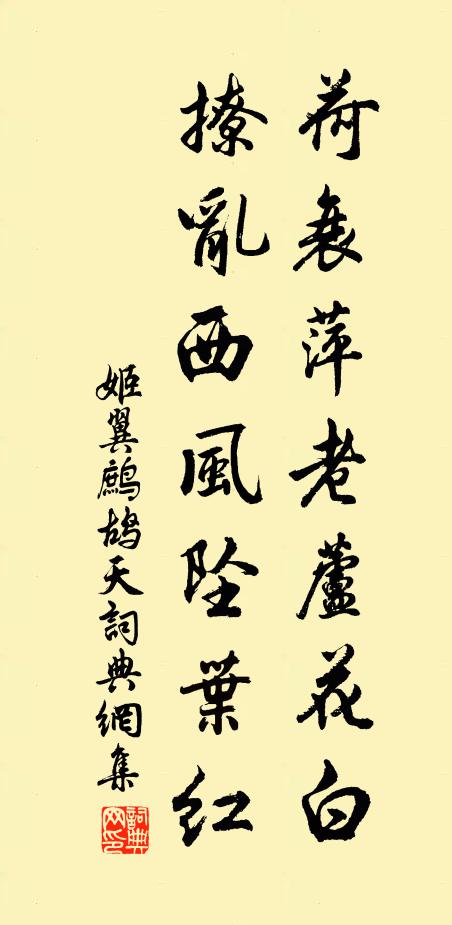 荷衰萍老蘆花白
撩亂西風墜葉紅
姬翼鷓鴣天詞典網集
詞典網印